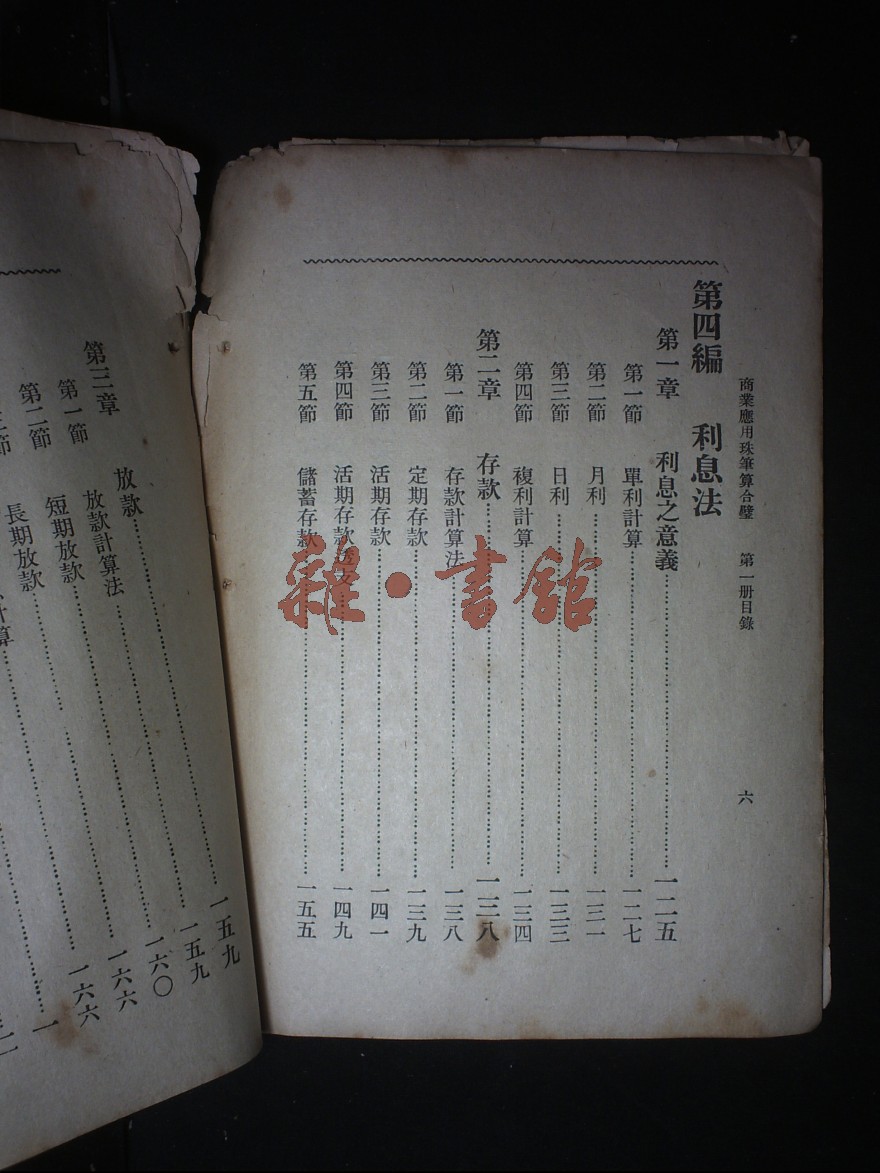 商業應用珠筆算合璧 第一册目錄 六
第四編 利息法
第一章 利息之意義 一二五
第一節 單利計算 一二七
第二節 月利 一三一
第三節 日利 一三三
第四節 複利計算 一三四
第二章 存款 一三八
第一節 存款計算法 一三八
第二節 定期存款 一三九
第三節 活期存款 一四一
第四節 活期存款透支 一四九
第五節 儲蓄存款 一五五
雜·書館
第三章 放款 一五九
第一節 放款計算法 一五九
第二節 短期放款 一六〇
長期放款 一六六
一六六